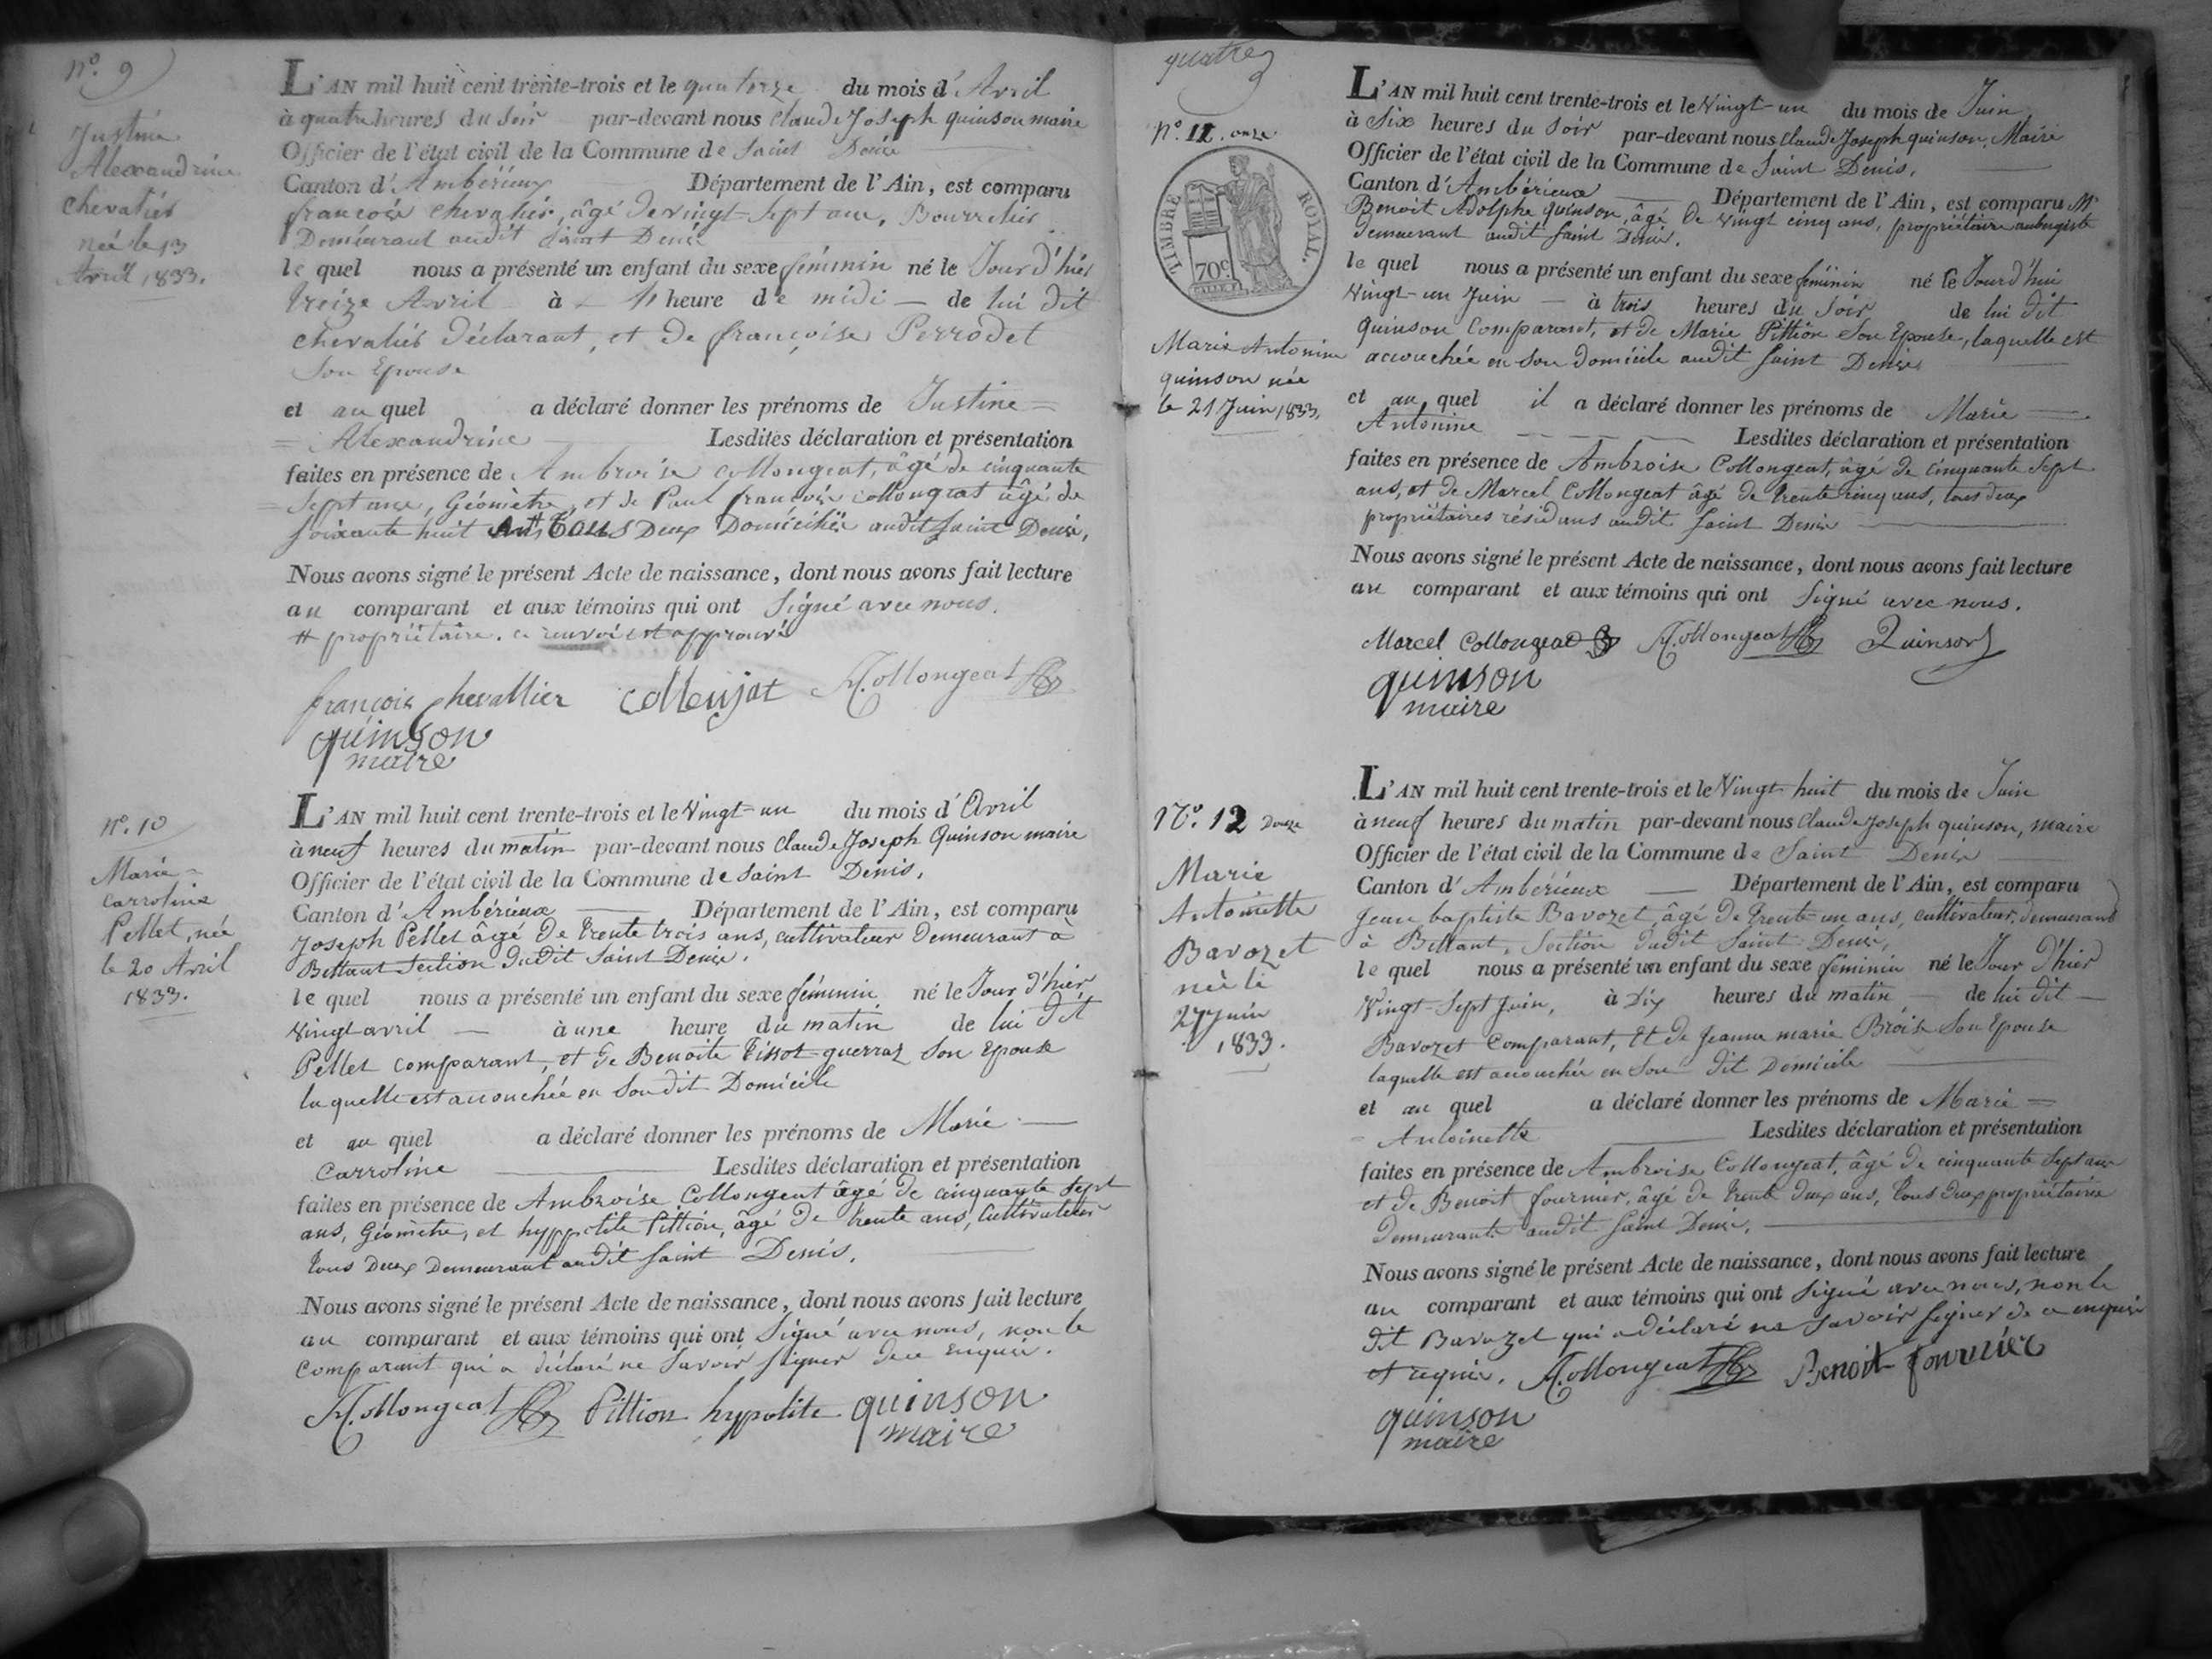 nº. 9
Justine
Alexandrine
Chevalier
née le 13
Avril 1833.
L'AN mil huit cent trente-trois et le quatorze du mois d'Avril
à quatre heures du soir par-devant nous Claude Joseph quinson maire
Officier de l'état civil de la Commune de Saint Denis
Canton d'Ambérieux Département de l'Ain, est comparu
françois Chevalier, âgé de vingt-sept ans, Bourrelier
Demeurant audit Saint Denis
le quel nous a présenté un enfant du sexe féminin né le Jour d'hier
treize Avril à heure de midi — de lui dit
Chevalier déclarant, et de françoise Perrodet
Son Epouse
et au quel a déclaré donner les prénoms de Justine =
= Alexandrine Lesdites déclaration et présentation
faites en présence de Ambroise Collongeat, âgé de cinquante
= Sept ans, Géomètre, et de Paul françois Collongeat âgé de
soixante huit Ans # Tous Deux Domiciliés audit Saint Denis,
Nous avons signé le présent Acte de naissance, dont nous avons fait lecture
au comparant et aux témoins qui ont Signé avec nous.
# propriétaire. ce renvoi est approuvé
françois Chevallier Collonjat A. Collongeat
quinson
maire
nº. 10
Marie =
Carroline
Pellet, née
le 20 Avril
1833.
L'AN mil huit cent trente-trois et le Vingt-un du mois d'Avril
à neuf heures du matin par-devant nous Claude Joseph Quinson maire
Officier de l'état civil de la Commune de Saint Denis,
Canton d'Ambérieux Département de l'Ain, est comparu
Joseph Pellet âgé de trente trois ans, cultivateur demeurant à
Bettant Section dudit Saint Denis.
le quel nous a présenté un enfant du sexe féminin né le Jour d'hier
Vingt avril — à une heure du matin de lui dit
Pellet comparant, et de Benoite Tissot-guerraz Son Epouse
laquelle est accouchée en Son dit Domicile
et au quel a déclaré donner les prénoms de Marie —
Carroline Lesdites déclaration et présentation
faites en présence de Ambroise Collongeat âgé de cinquante Sept
ans, Géomètre, et hyppolite Pittion, âgé de trente ans, Cultivateur
tous Deux Demeurant audit Saint Denis,
Nous avons signé le présent Acte de naissance, dont nous avons fait lecture
au comparant et aux témoins qui ont Signé avec nous, non le
Comparant qui a déclaré ne Savoir Signer de ce Enquis.
A. Collongeat Pittion hypolite quinson
maire
quatre
Nº. 11. onze
TIMBRE ROYAL.
70c
Marie Antonine
quinson née
le 21 Juin 1833.
L'AN mil huit cent trente-trois et le Vingt-un du mois de Juin
à Six heures du Soir par-devant nous Claude Joseph quinson, Maire
Officier de l'état civil de la Commune de Saint Denis,
Canton d'Ambérieux Département de l'Ain, est comparu Mr
Benoit Adolphe quinson, âgé De Vingt cinq ans, propriétaire aubergiste
demeurant audit Saint Denis.
le quel nous a présenté un enfant du sexe féminin né le Jourd'hui
Vingt-un Juin — à trois heures du Soir de lui dit
Quinson Comparant, et de Marie Pittion Son Epouse, laquelle est
accouchée en Son domicile audit Saint Denis
et au quel il a déclaré donner les prénoms de Marie —
Antonine Lesdites déclaration et présentation
faites en présence de Ambroise Collongeat, âgé de cinquante Sept
ans, et de Marcel Collongeat âgé de trente cinq ans, tous deux
propriétaires résidans audit Saint Denis
Nous avons signé le présent Acte de naissance, dont nous avons fait lecture
au comparant et aux témoins qui ont Signé avec nous.
Marcel Collongeat A. Collongeat Quinson
quinson
maire
Nº. 12 Douze
Marie
Antoinette
Bavozet
née le
27 Juin
1833.
L'AN mil huit cent trente-trois et le Vingt-huit du mois de Juin
à neuf heures du matin par-devant nous Claude Joseph quinson, maire
Officier de l'état civil de la Commune de Saint Denis
Canton d'Ambérieux — Département de l'Ain, est comparu
Jean baptiste Bavozet, âgé De trente-un ans, cultivateur, demeurant
à Bettant, Section dudit Saint Denis,
le quel nous a présenté un enfant du sexe féminin né le Jour d'hier
Vingt-Sept Juin, à Dix heures du matin — de lui dit —
Bavozet Comparant, Et de Jeanne marie Broise Son Epouse
laquelle est accouchée en Son dit Domicile
et au quel a déclaré donner les prénoms de Marie =
= Antoinette Lesdites déclaration et présentation
faites en présence de Ambroise Collongeat, âgé de cinquante Sept ans
et de Benoit fournier, âgé de trente deux ans, tous deux propriétaires
Demeurants audit Saint Denis.
Nous avons signé le présent Acte de naissance, dont nous avons fait lecture
au comparant et aux témoins qui ont Signé avec nous, non le
dit Bavozet qui a déclaré ne Savoir Signer de ce enquis
et requis. A. Collongeat Benoit fournier
quinson
maire